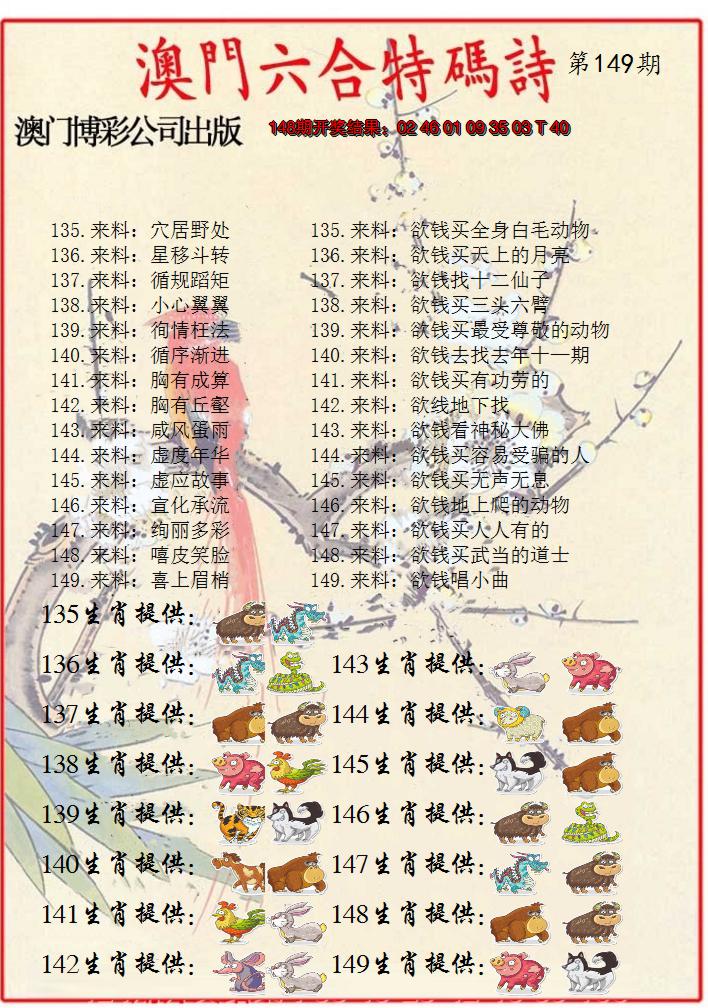 澳門六合特碼詩 第149期
澳门博彩公司出版 148期开奖结果：02 46 01 09 35 03 T 40
135.来料：穴居野处 135.来料：欲钱买全身白毛动物
136.来料：星移斗转 136.来料：欲钱买天上的月亮
137.来料：循规蹈矩 137.来料：欲钱找十二仙子
138.来料：小心翼翼 138.来料：欲钱买三头六臂
139.来料：徇情枉法 139.来料：欲钱买最受尊敬的动物
140.来料：循序渐进 140.来料：欲钱去找去年十一期
141.来料：胸有成算 141.来料：欲钱买有功劳的
142.来料：胸有丘壑 142.来料：欲线地下找
143.来料：咸风蛋雨 143.来料：欲钱看神秘大佛
144.来料：虚度年华 144.来料：欲钱买容易受骗的人
145.来料：虚应故事 145.来料：欲钱买无声无息
146.来料：宣化承流 146.来料：欲钱地上爬的动物
147.来料：绚丽多彩 147.来料：欲钱买人人有的
148.来料：嘻皮笑脸 148.来料：欲钱买武当的道士
149.来料：喜上眉梢 149.来料：欲钱唱小曲
135生肖提供：
136生肖提供： 143生肖提供：
137生肖提供： 144生肖提供：
138生肖提供： 145生肖提供：
139生肖提供： 146生肖提供：
140生肖提供： 147生肖提供：
141生肖提供： 148生肖提供：
142生肖提供： 149生肖提供：